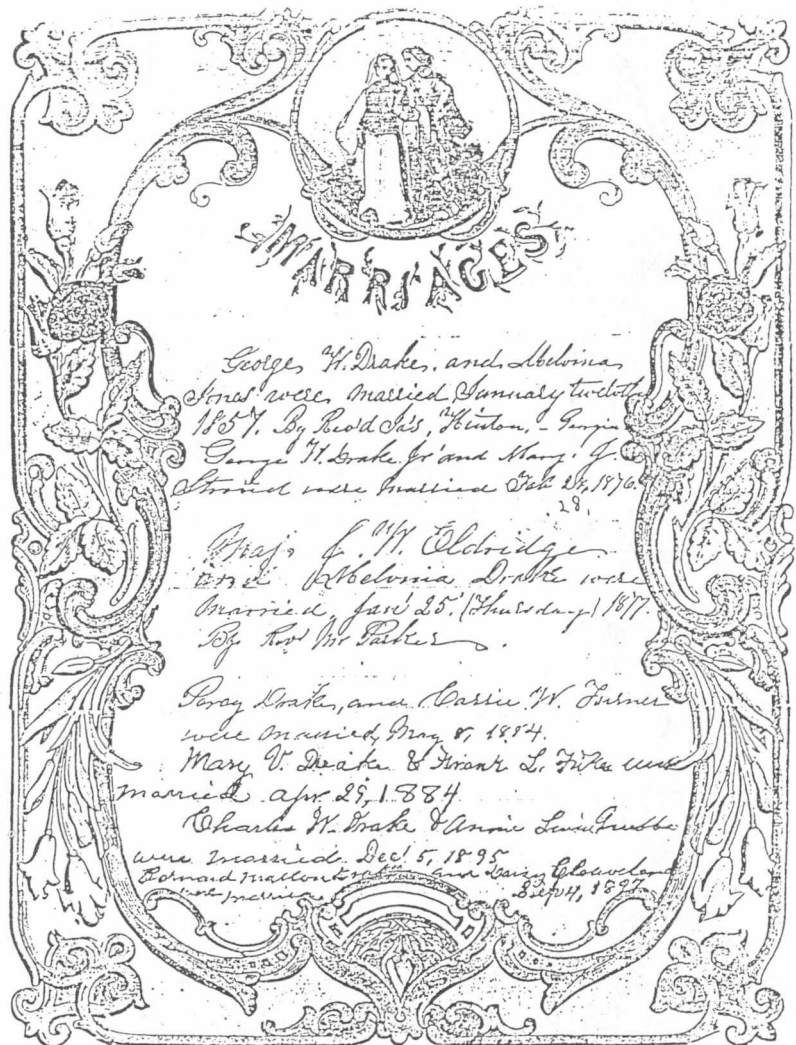 MARRIAGES
George H. Drake, and Melvina
Jones were married January twelfth
1857. By Rev'd Ja's, Hinton, - Georgia
George H. Drake Jr and Mary J.
Stroud were married Feb 28, 1876.
28,
Maj. J. W. Eldridge
and Melvina Drake were
married, Jan' 25. (Thursday) 1877.
By Rev Mr Parker.
Percy Drake, and Carrie W. Turner
were married, May 8, 1884.
Mary V. Drake & Frank L. were
married apr. 29, 1884
Charles W. Drake & Annie Grubbs
were married Dec' 5, 1895
Bernard Mallon and Daisy Cleaveland
were married 1897